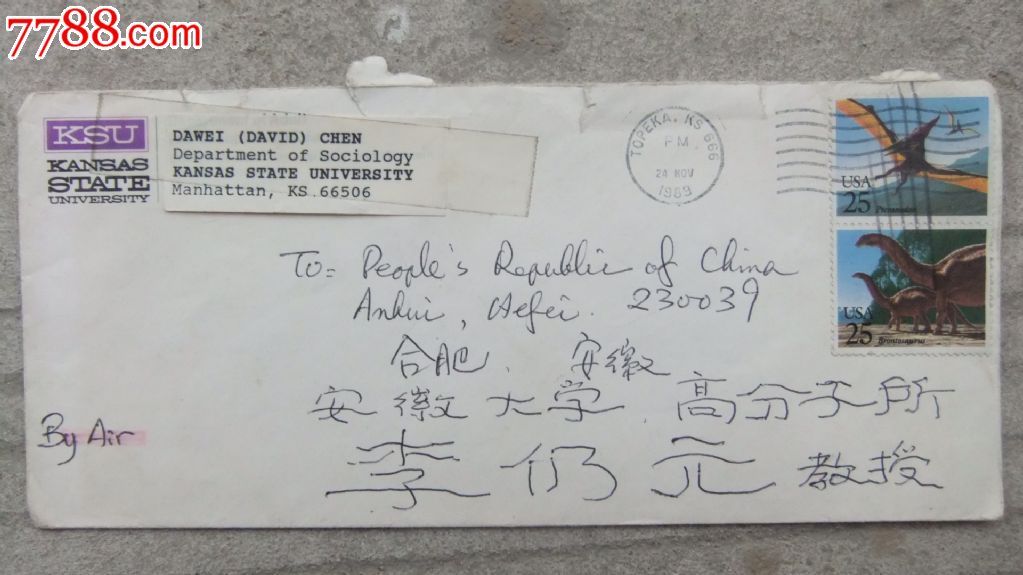 7788.com
KSU
KANSAS
STATE
UNIVERSITY
DAWEI (DAVID) CHEN
Department of Sociology
KANSAS STATE UNIVERSITY
Manhattan, KS.66506
TOPEKA, KS 666
PM
24 NOV
1989
USA
25 Pteranodon
USA
25 Brontosaurus
To= People's Republic of China
Anhui, Hefei. 230039
合肥. 安徽
安徽大学.高分子所
李仍元教授
By Air